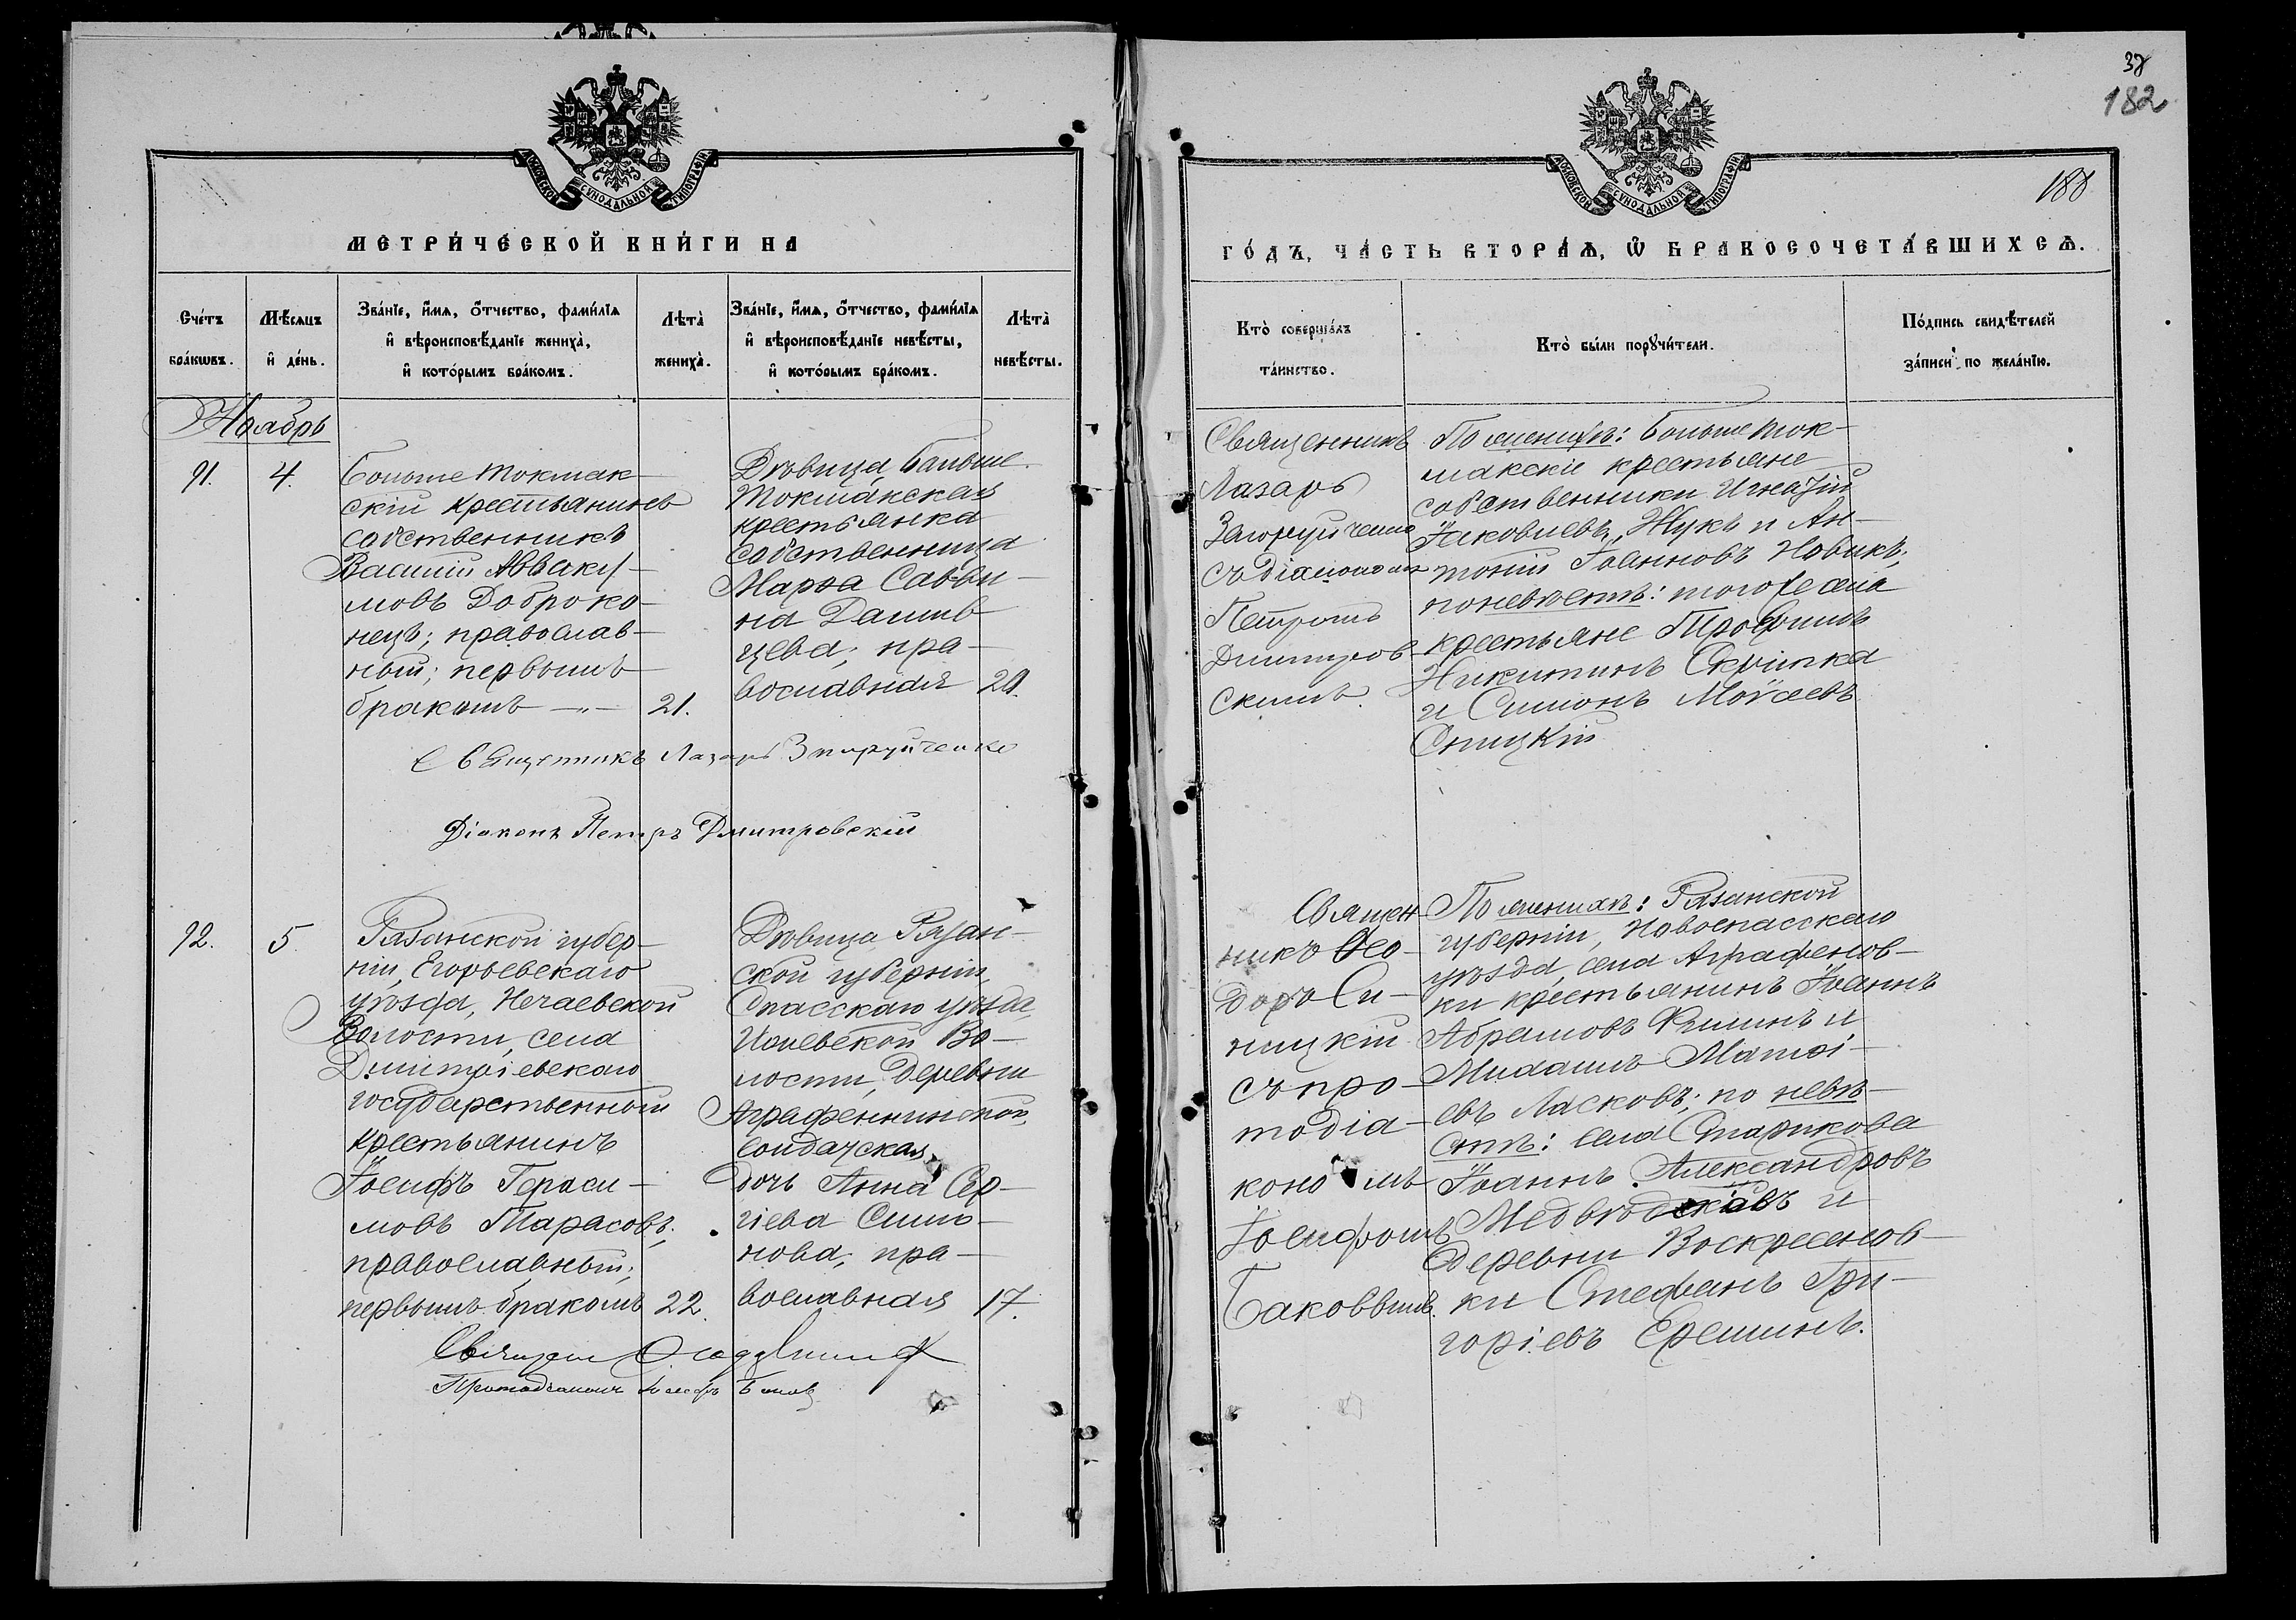 38
182
188
МОСКОВСКОЙ СѴНОДАЛЬНОЙ ТИПОГРАФІИ
МЕТРИ́ЧЕСКОЙ КНИ́ГИ НА
Сче́тъ бра́кѡвъ.
Мѣ́сяцъ и҆ де́нь.
Зва́нїе, и҆́мѧ, ѻ҆́тчество, фами́лїѧ
и҆ вѣроисповѣ́данїе жениха̀,
и҆ кото́рымъ бра́комъ.
Лѣта̀ жениха̀.
Зва́нїе, и҆́мѧ, ѻ҆́тчество, фами́лїѧ
и҆ вѣроисповѣ́данїе невѣ́сты,
и҆ кото́рымъ бра́комъ.
Лѣта̀ невѣ́сты.
Ноябрь
91.
4.
Больше Токмак-
скій крестьянинъ
собственникъ
Василій Авваку-
мовъ Доброко-
нецъ; православ-
ный; первымъ
бракомъ —"—
21.
Дѣвица Больше-
Токмакская
крестьянка
собственница
Марѳа Савви-
на
цева; пра-
вославная
20.
Священникъ Лазарь Загоруйченко
Діаконъ Петръ Дмитровскій
92.
5.
Рязанской губер-
ніи, Егорьевскаго
уѣзда, Нечаевской
Волости, села
Димитріевскаго
государственный
крестьянинъ
Іосифъ Гераси-
мовъ Тарасовъ;
православный;
первымъ бракомъ
22.
Дѣвица Рязан-
ской губерніи,
Спасскаго уѣзда,
Во-
лости, деревни
солдатская
дочь Анна Сер-
гіева Симо-
нова; пра-
вославная
17.
Священ
Протодіаконъ Іосифъ
МОСКОВСКОЙ СѴНОДАЛЬНОЙ ТИПОГРАФІИ
ГО́ДЪ, ЧА́СТЬ ВТОРА́Ѧ, Ѽ БРАКОСОЧЕТА́ВШИХСѦ.
Кто̀ соверша́лъ
та́инство.
Кто̀ бы́ли порꙋчи́тели.
По́дпись свидѣ́телей
за́писи по жела́нїю.
Священникъ
Лазарь
Загоруйченко
съ діакономъ
Петромъ
Дмитров-
скимъ.
По женихѣ: Больше Ток-
макскіе крестьяне
собственники Игнатій
Іаковлевъ Жукъ и Ан-
тоній Іоанновъ Новикъ;
по невѣстѣ: того же села
крестьяне Трофимъ
Никитинъ Скрипка
и Симонъ Моѵсеевъ
Спицкій
Священ-
никъ Ѳео-
доръ Си-
ницкій
съ про-
тодіа-
кономъ
Іосифомъ
По женихѣ: Рязанской
губерніи, Новоспасскаго
уѣзда, села Аграфенов-
ки крестьянинъ Іоаннъ
Абрамовъ и
Михаилъ Матѳі-
евъ Ласковъ; по невѣ-
стѣ: села Старикова
Іоаннъ Александровъ
и
деревни Воскресенов-
ки Стефанъ Гри-
горіевъ Ереминъ.